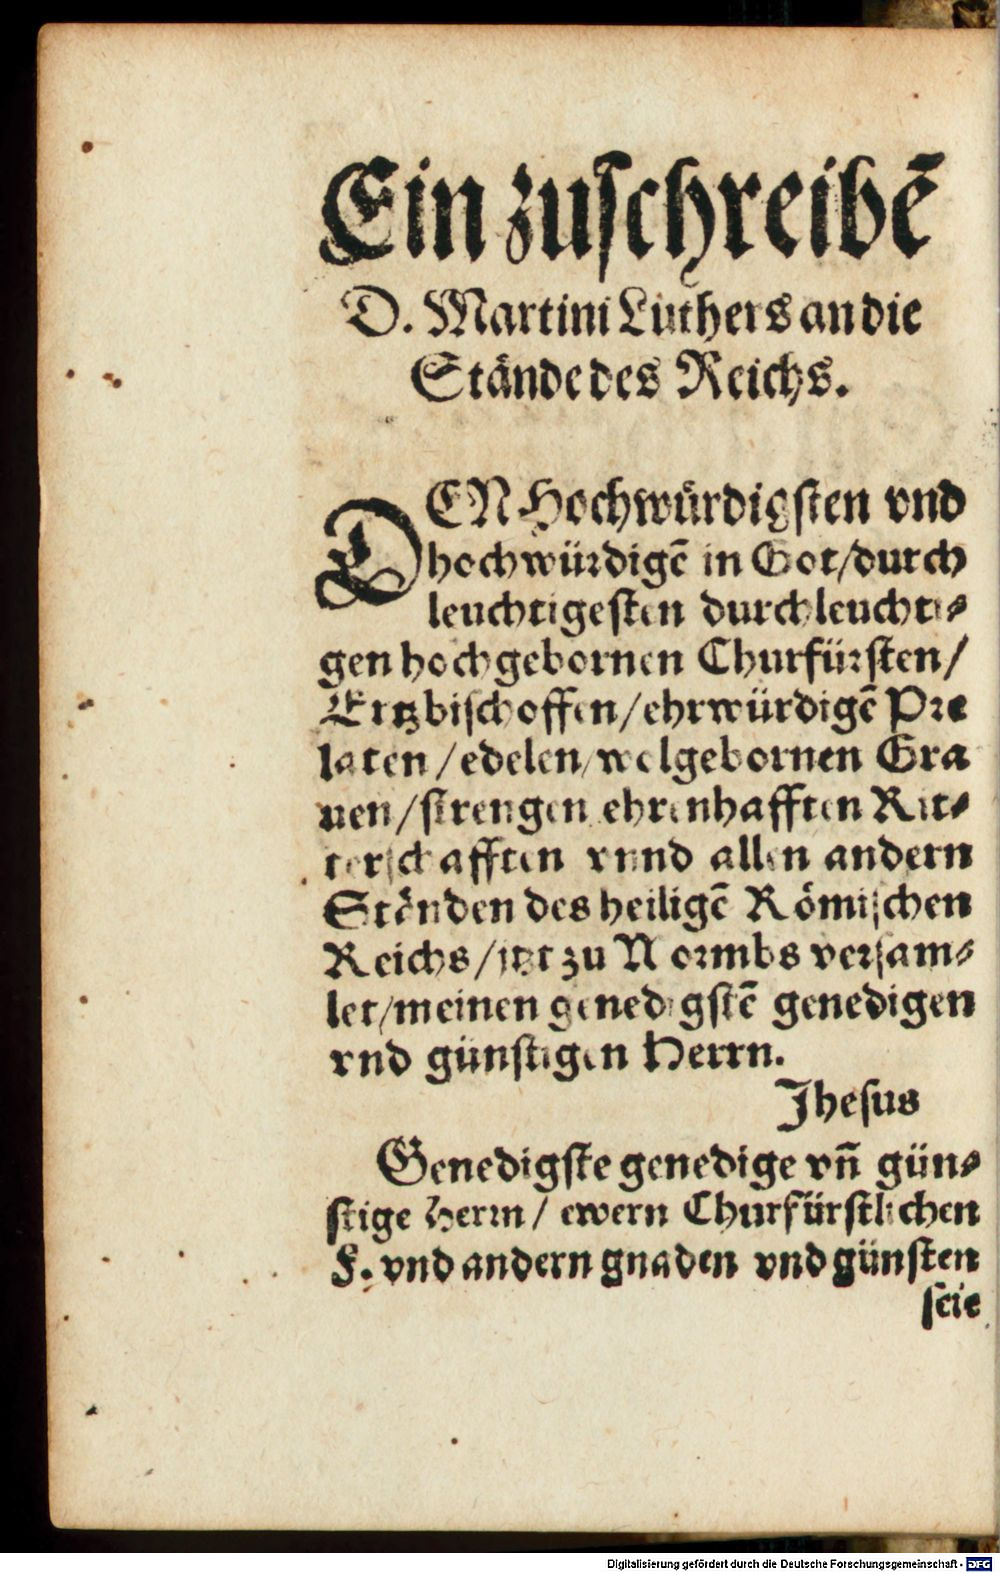 Ein zuſchreibē
D. Martini Luthers an die
Stände des Reichs.
DEN Hochwürdigſten vnd
hochwürdigē in Got/durch
leuchtigeſten durchleuchti⸗
gen hochgebornen Churfürſten/
Ertzbiſchoffen/ehrwürdigē Pre
laten/edelen/wolgebornen Gra
uen/ſtrengen ehrenhafften Rit⸗
terſchafften vnnd allen andern
Ständen des heiligē Römiſchen
Reichs/itzt zu Wormbs verſam⸗
let/meinen genedigſtē genedigen
vnd günſtigen Herrn.
Jheſus
Genedigſte genedige vn̄ gün⸗
ſtige Herrn/ ewern Churfürſtlichen
F. vnd andern gnaden vnd günſten
ſeie
Digitalisierung gefördert durch die Deutsche Forschungsgemeinschaft - DFG